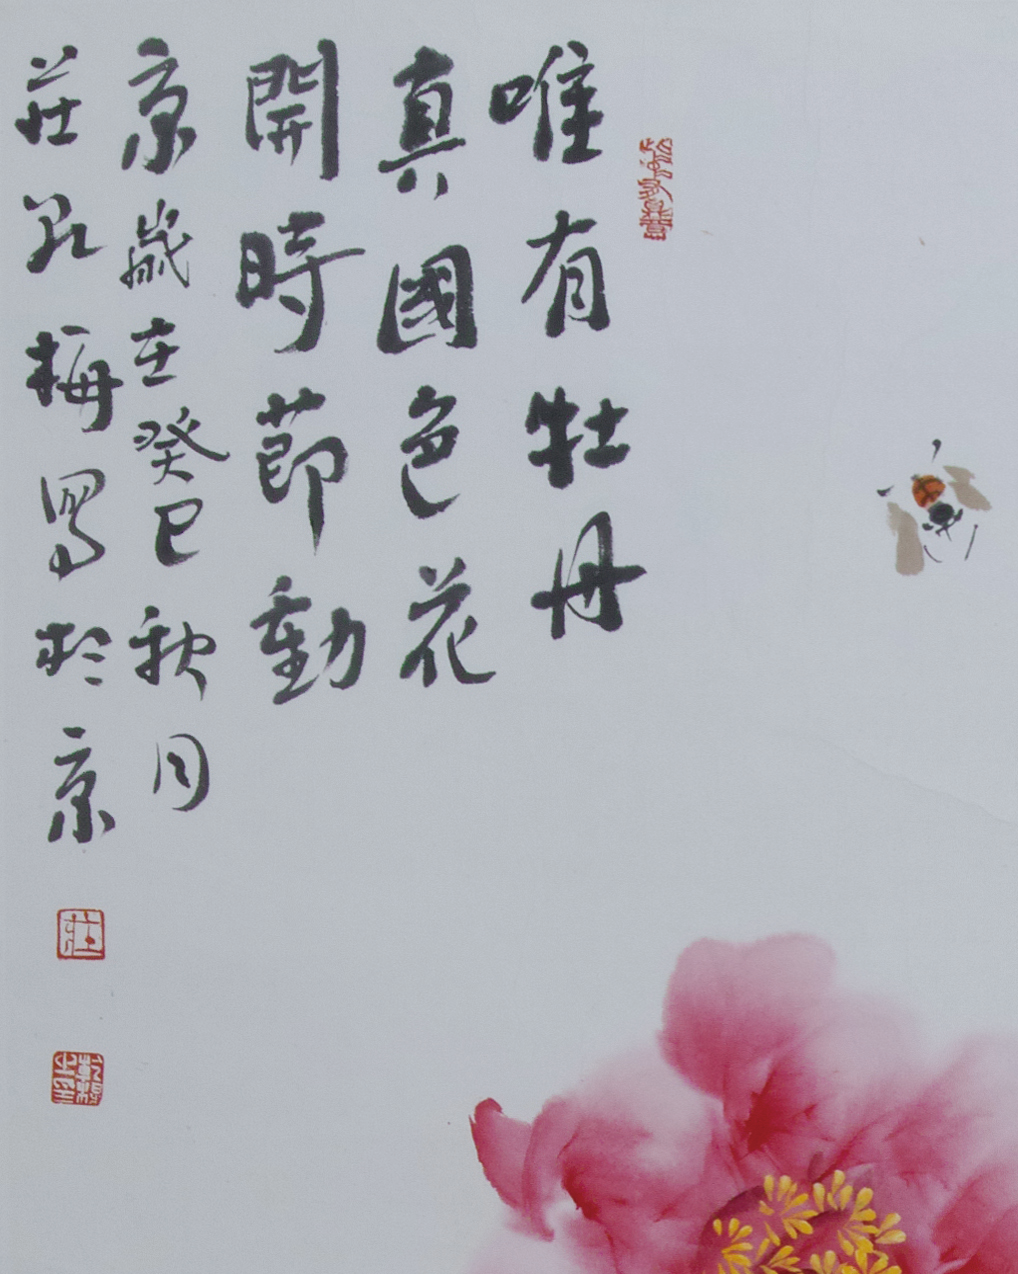 唯有牡丹
真國色花
開時節動
京歲在癸巳秋月
莊㐱梅寫於京
莊